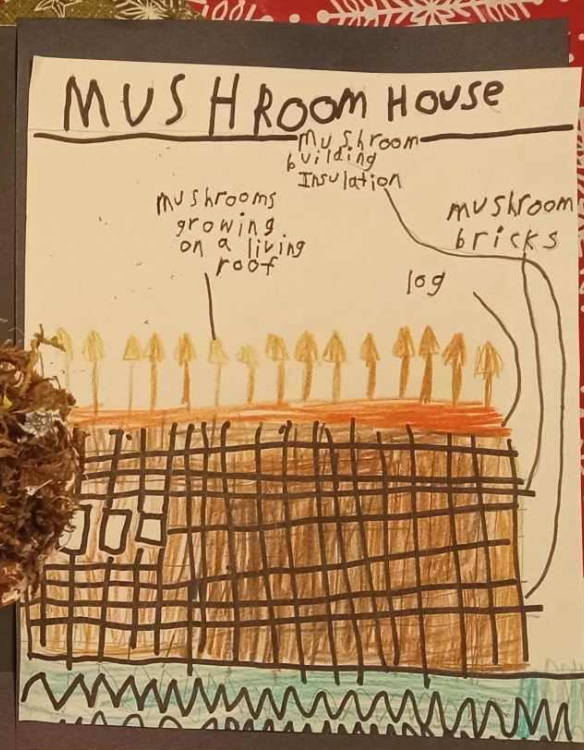 MUSHROOM HOUSE
Mushroom
building
Insulation
mushrooms
growing
on a living
roof
mushroom
bricks
log